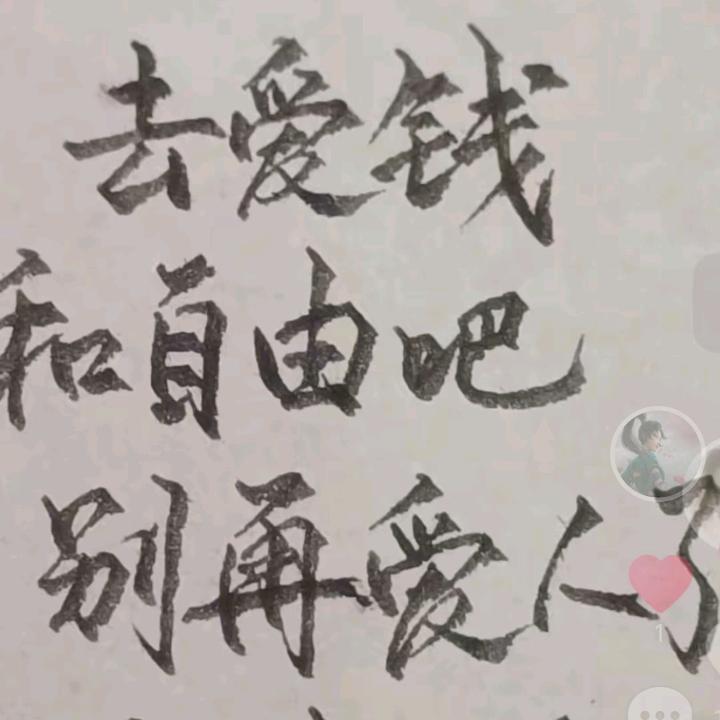 去爱钱
和自由吧
别再爱人了
1